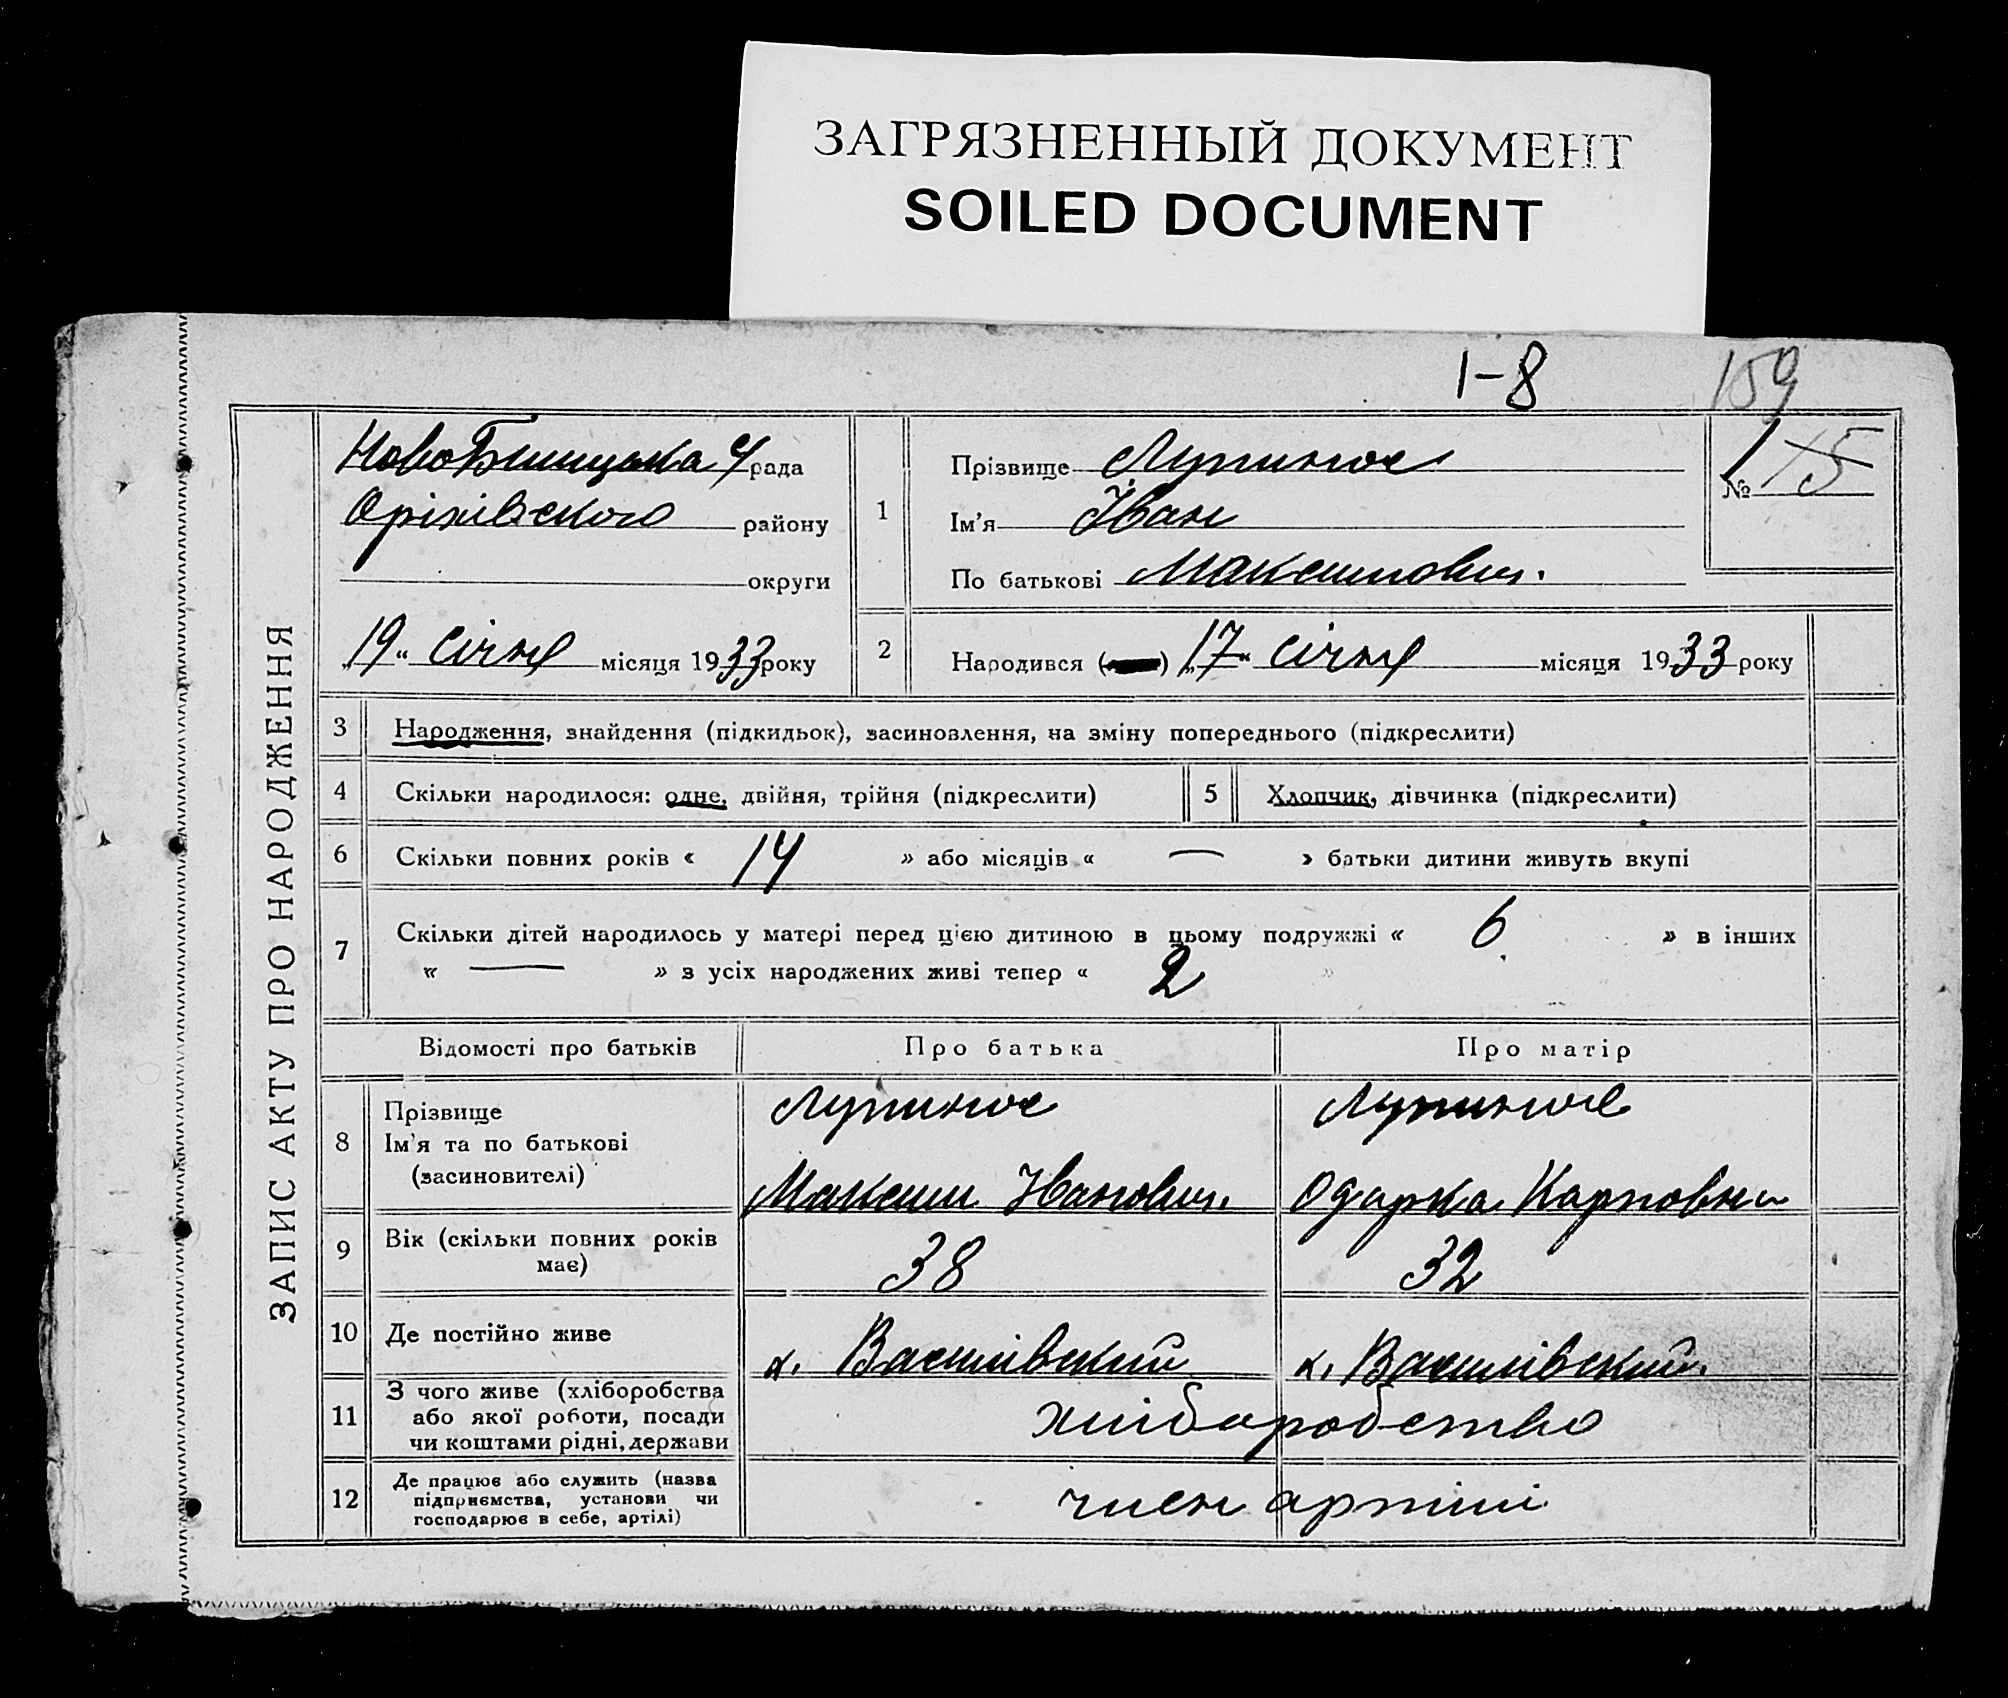 ЗАГРЯЗНЕННЫЙ ДОКУМЕНТ
SOILED DOCUMENT
1-8
159
ЗАПИС АКТУ ПРО НАРОДЖЕННЯ
рада
Оріхівського району
округи
„19“ січня місяця 1933 року
1
Прізвище
Ім'я Іван
По батькові Максимович.
№ 15
2
Народився „17“ січня місяця 1933 року
3 Народження, знайдення (підкидьок), засиновлення, на зміну попереднього (підкреслити)
4 Скільки народилося: одне, двійня, трійня (підкреслити) 5 Хлопчик, дівчинка (підкреслити)
6 Скільки повних років « 14 » або місяців « — » батьки дитини живуть вкупі
7 Скільки дітей народилось у матері перед цією дитиною в цьому подружжі « 6 » в інших
« — » з усіх народжених живі тепер « 2 »
Відомості про батьків Про батька Про матір
8 Прізвище
Ім'я та по батькові
(засиновителі)
Максим Іванович.
Одарка Карповна
9 Вік (скільки повних років
має)
38 32
10 Де постійно живе
11 З чого живе (хліборобства
або якої роботи, посади
чи коштами рідні, держави
хліборобство
12 Де працює або служить (назва
підприємства, установи чи
господарює в себе, артілі)
член артілі